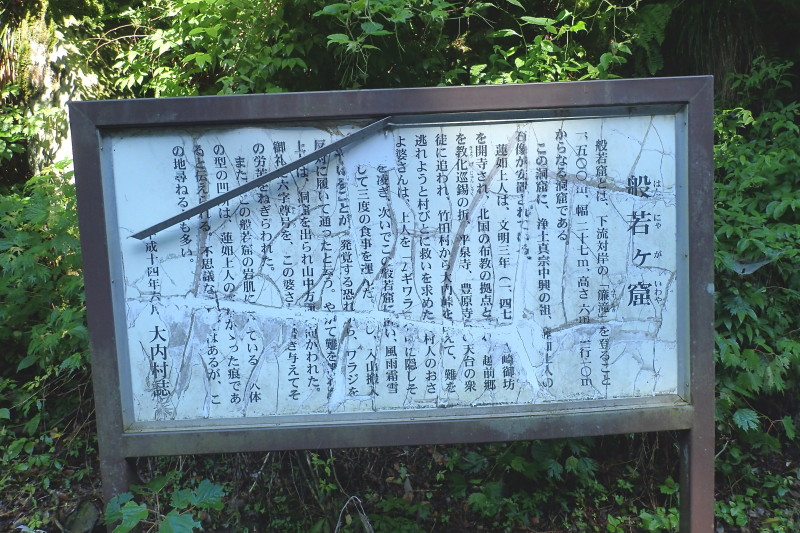 般若ケ窟
はんにゃがいわや
般若窟とは、下流対岸の「簾滝」を登ること
一、五〇〇m、幅二十七m、高さ六m、奥行二〇m
からなる洞窟である。
この洞窟に、浄土真宗中興の祖、蓮如上人の
像が安置されている。
蓮如上人は、文明三年（一、四七 崎御坊
を開寺され、北国の布教の拠点と 越前郷
を教化巡錫の折、平泉寺、豊原寺 天台の衆
徒に追われ、竹田村から 内峠を えて、難を
逃れようと村びとに救いを求めた 村人のおさ
よ婆さんは、上人を ギワラ に隠しそ
を凌ぎ、次いでこの般若窟に い、風雨霜雪
して三度の食事を運んだ。 し、入山搬入
ていることが、発覚する恐れ ワラジを
反対に履いて通ったと言う。やがて難を
上人は、洞窟を出られ山中方面 向かわれた。
御礼に六字尊号を、この婆さ ぎ与えてそ
の労苦をねぎらわれた。
また、この般若窟の岩肌に ている 人体
の型の凹みは、蓮如上人の かった痕であ
ると伝えられる。不思議な はあるが、こ
の地尋ねる も多い。
成十四年六月 大内村誌